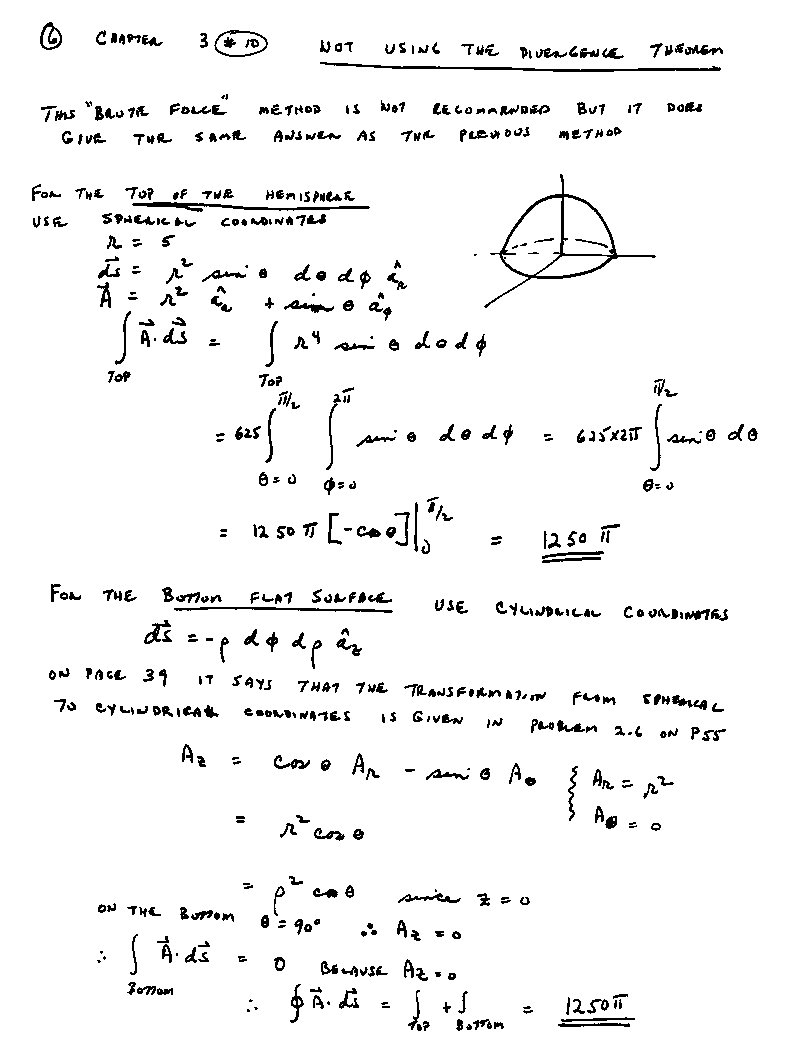 ⑥ CHAPTER 3 #10 NOT USING THE DIVERGENCE THEOREM
THIS "BRUTE FORCE" METHOD IS NOT RECOMMENDED BUT IT DOES
GIVE THE SAME ANSWER AS THE PREVIOUS METHOD
FOR THE TOP OF THE HEMISPHERE
USE SPHERICAL COORDINATES
r = 5
d\vec{s} = r² sin θ dθ dφ â_r
\vec{A} = r² â_r + sin θ â_φ
∫_TOP \vec{A}·d\vec{s} = ∫_TOP r⁴ sin θ dθ dφ
= 625 ∫_{θ=0}^{π/2} ∫_{φ=0}^{2π} sin θ dθ dφ = 625×2π ∫_{θ=0}^{π/2} sin θ dθ
= 1250 π [-cos θ]|_0^{π/2} = 1250 π
FOR THE BOTTOM FLAT SURFACE USE CYLINDRICAL COORDINATES
d\vec{s} = -ρ dφ dρ â_z
ON PAGE 39 IT SAYS THAT THE TRANSFORMATION FROM SPHERICAL
TO CYLINDRICAL COORDINATES IS GIVEN IN PROBLEM 2.6 ON P55
A_z = cos θ A_r - sin θ A_θ { A_r = r²
= r² cos θ { A_θ = 0
= ρ² cos θ since z = 0
ON THE BOTTOM θ = 90° ∴ A_z = 0
∴ ∫_BOTTOM \vec{A}·d\vec{s} = 0 BECAUSE A_z = 0
∴ ∮ \vec{A}·d\vec{s} = ∫_TOP + ∫_BOTTOM = 1250π